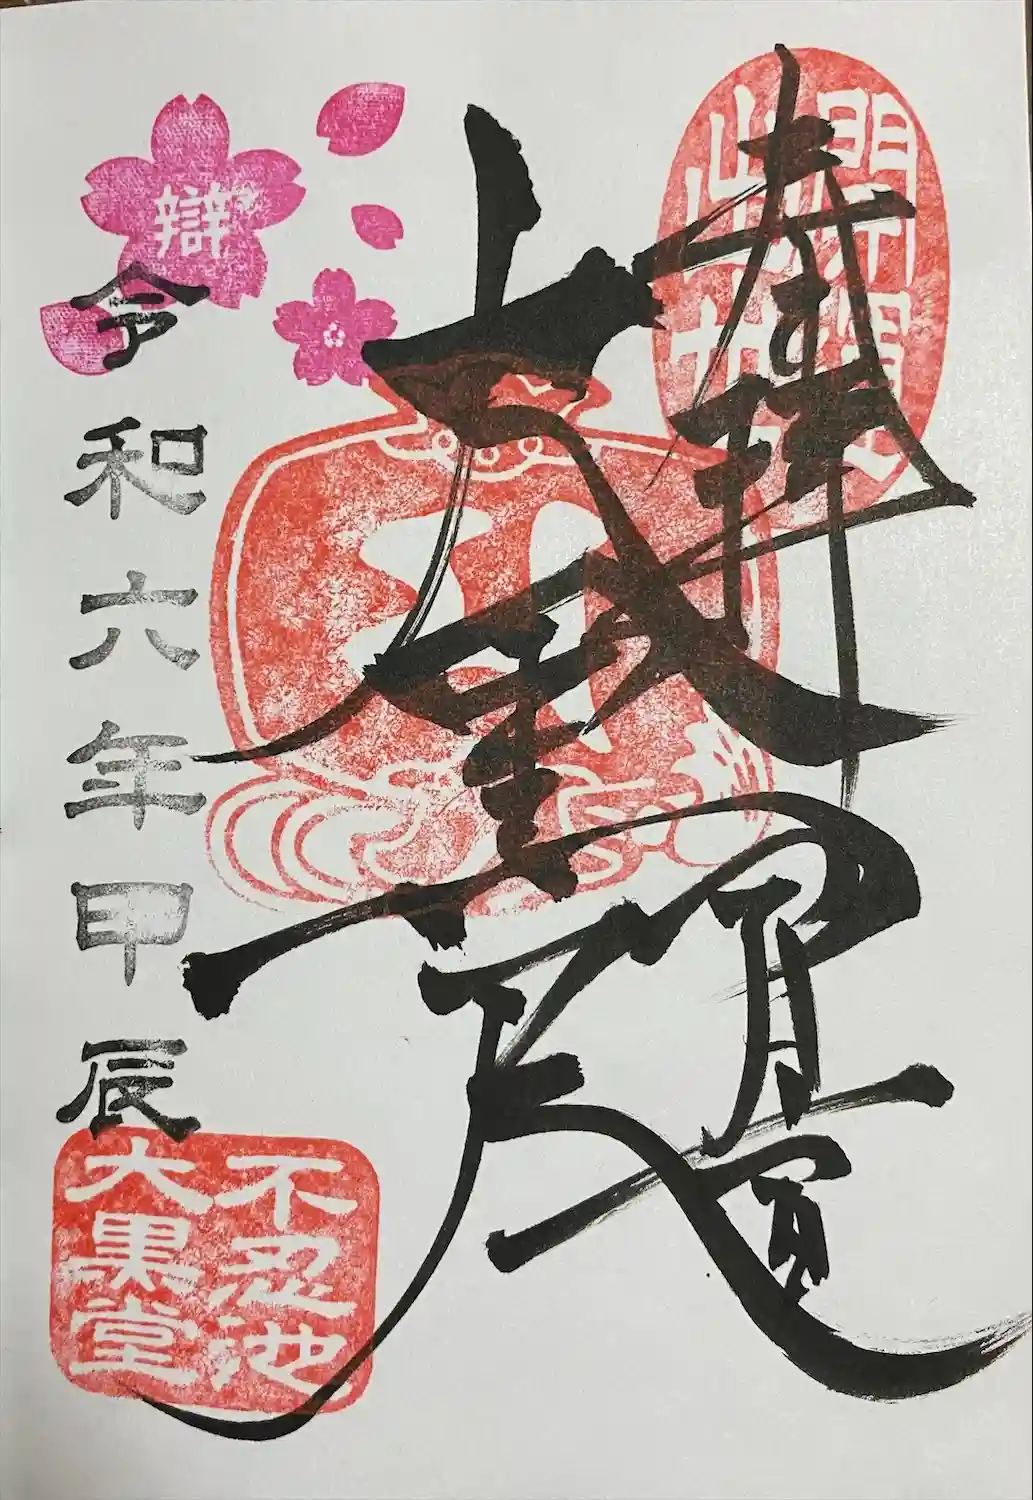 開運
出世
奉拝
大黒天
辯
令和六年甲辰
不忍池
大黒堂